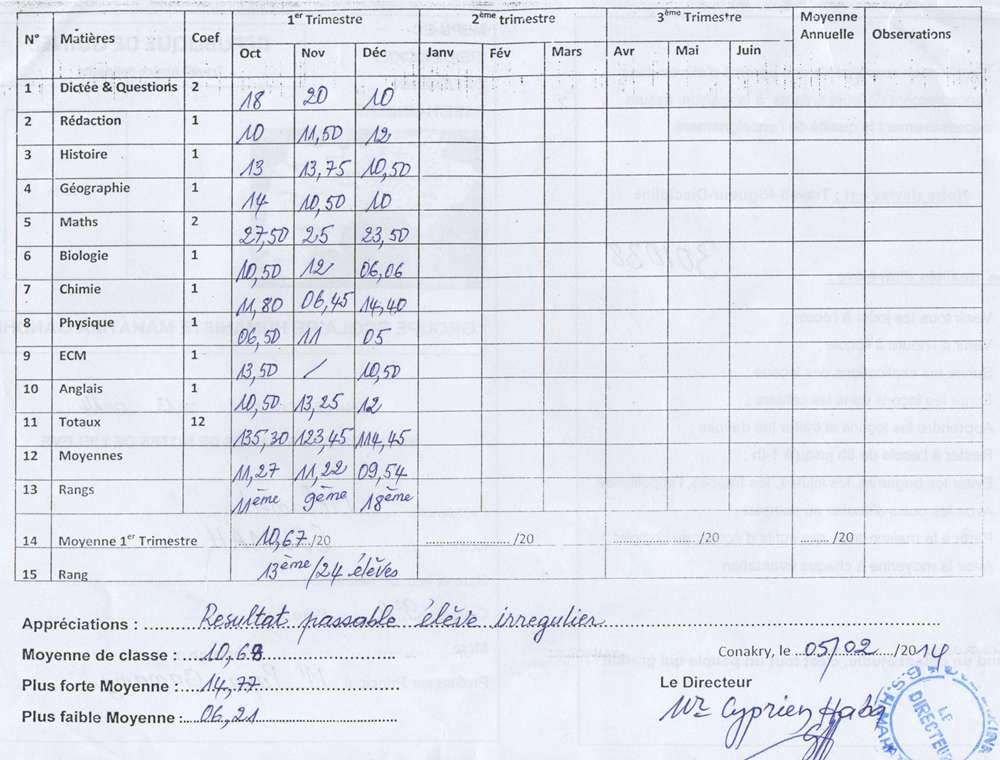 N° Matières Coef 1er Trimestre 2ème trimestre 3ème Trimestre Moyenne Annuelle Observations
Oct Nov Déc Janv Fév Mars Avr Mai Juin
1 Dictée & Questions 2 18 20 10
2 Rédaction 1 10 11,50 12
3 Histoire 1 13 13,75 10,50
4 Géographie 1 14 10,50 10
5 Maths 2 27,50 25 23,50
6 Biologie 1 10,50 12 06,06
7 Chimie 1 11,80 06,45 14,40
8 Physique 1 06,50 11 05
9 ECM 1 13,50 / 10,50
10 Anglais 1 10,50 13,25 12
11 Totaux 12 135,30 123,45 114,45
12 Moyennes 11,27 11,22 09,54
13 Rangs 11ème 9ème 18ème
14 Moyenne 1er Trimestre 10,67/20 ............../20 ............../20 ........../20
15 Rang 13ème/24 élèves
Appréciations : Resultat passable élève irregulier
Moyenne de classe : 10,68 Conakry, le 05/02/2014
Plus forte Moyenne : 14,77 Le Directeur
Plus faible Moyenne : 06,21 Mr Cyprien Haba
LE DIRECTEUR